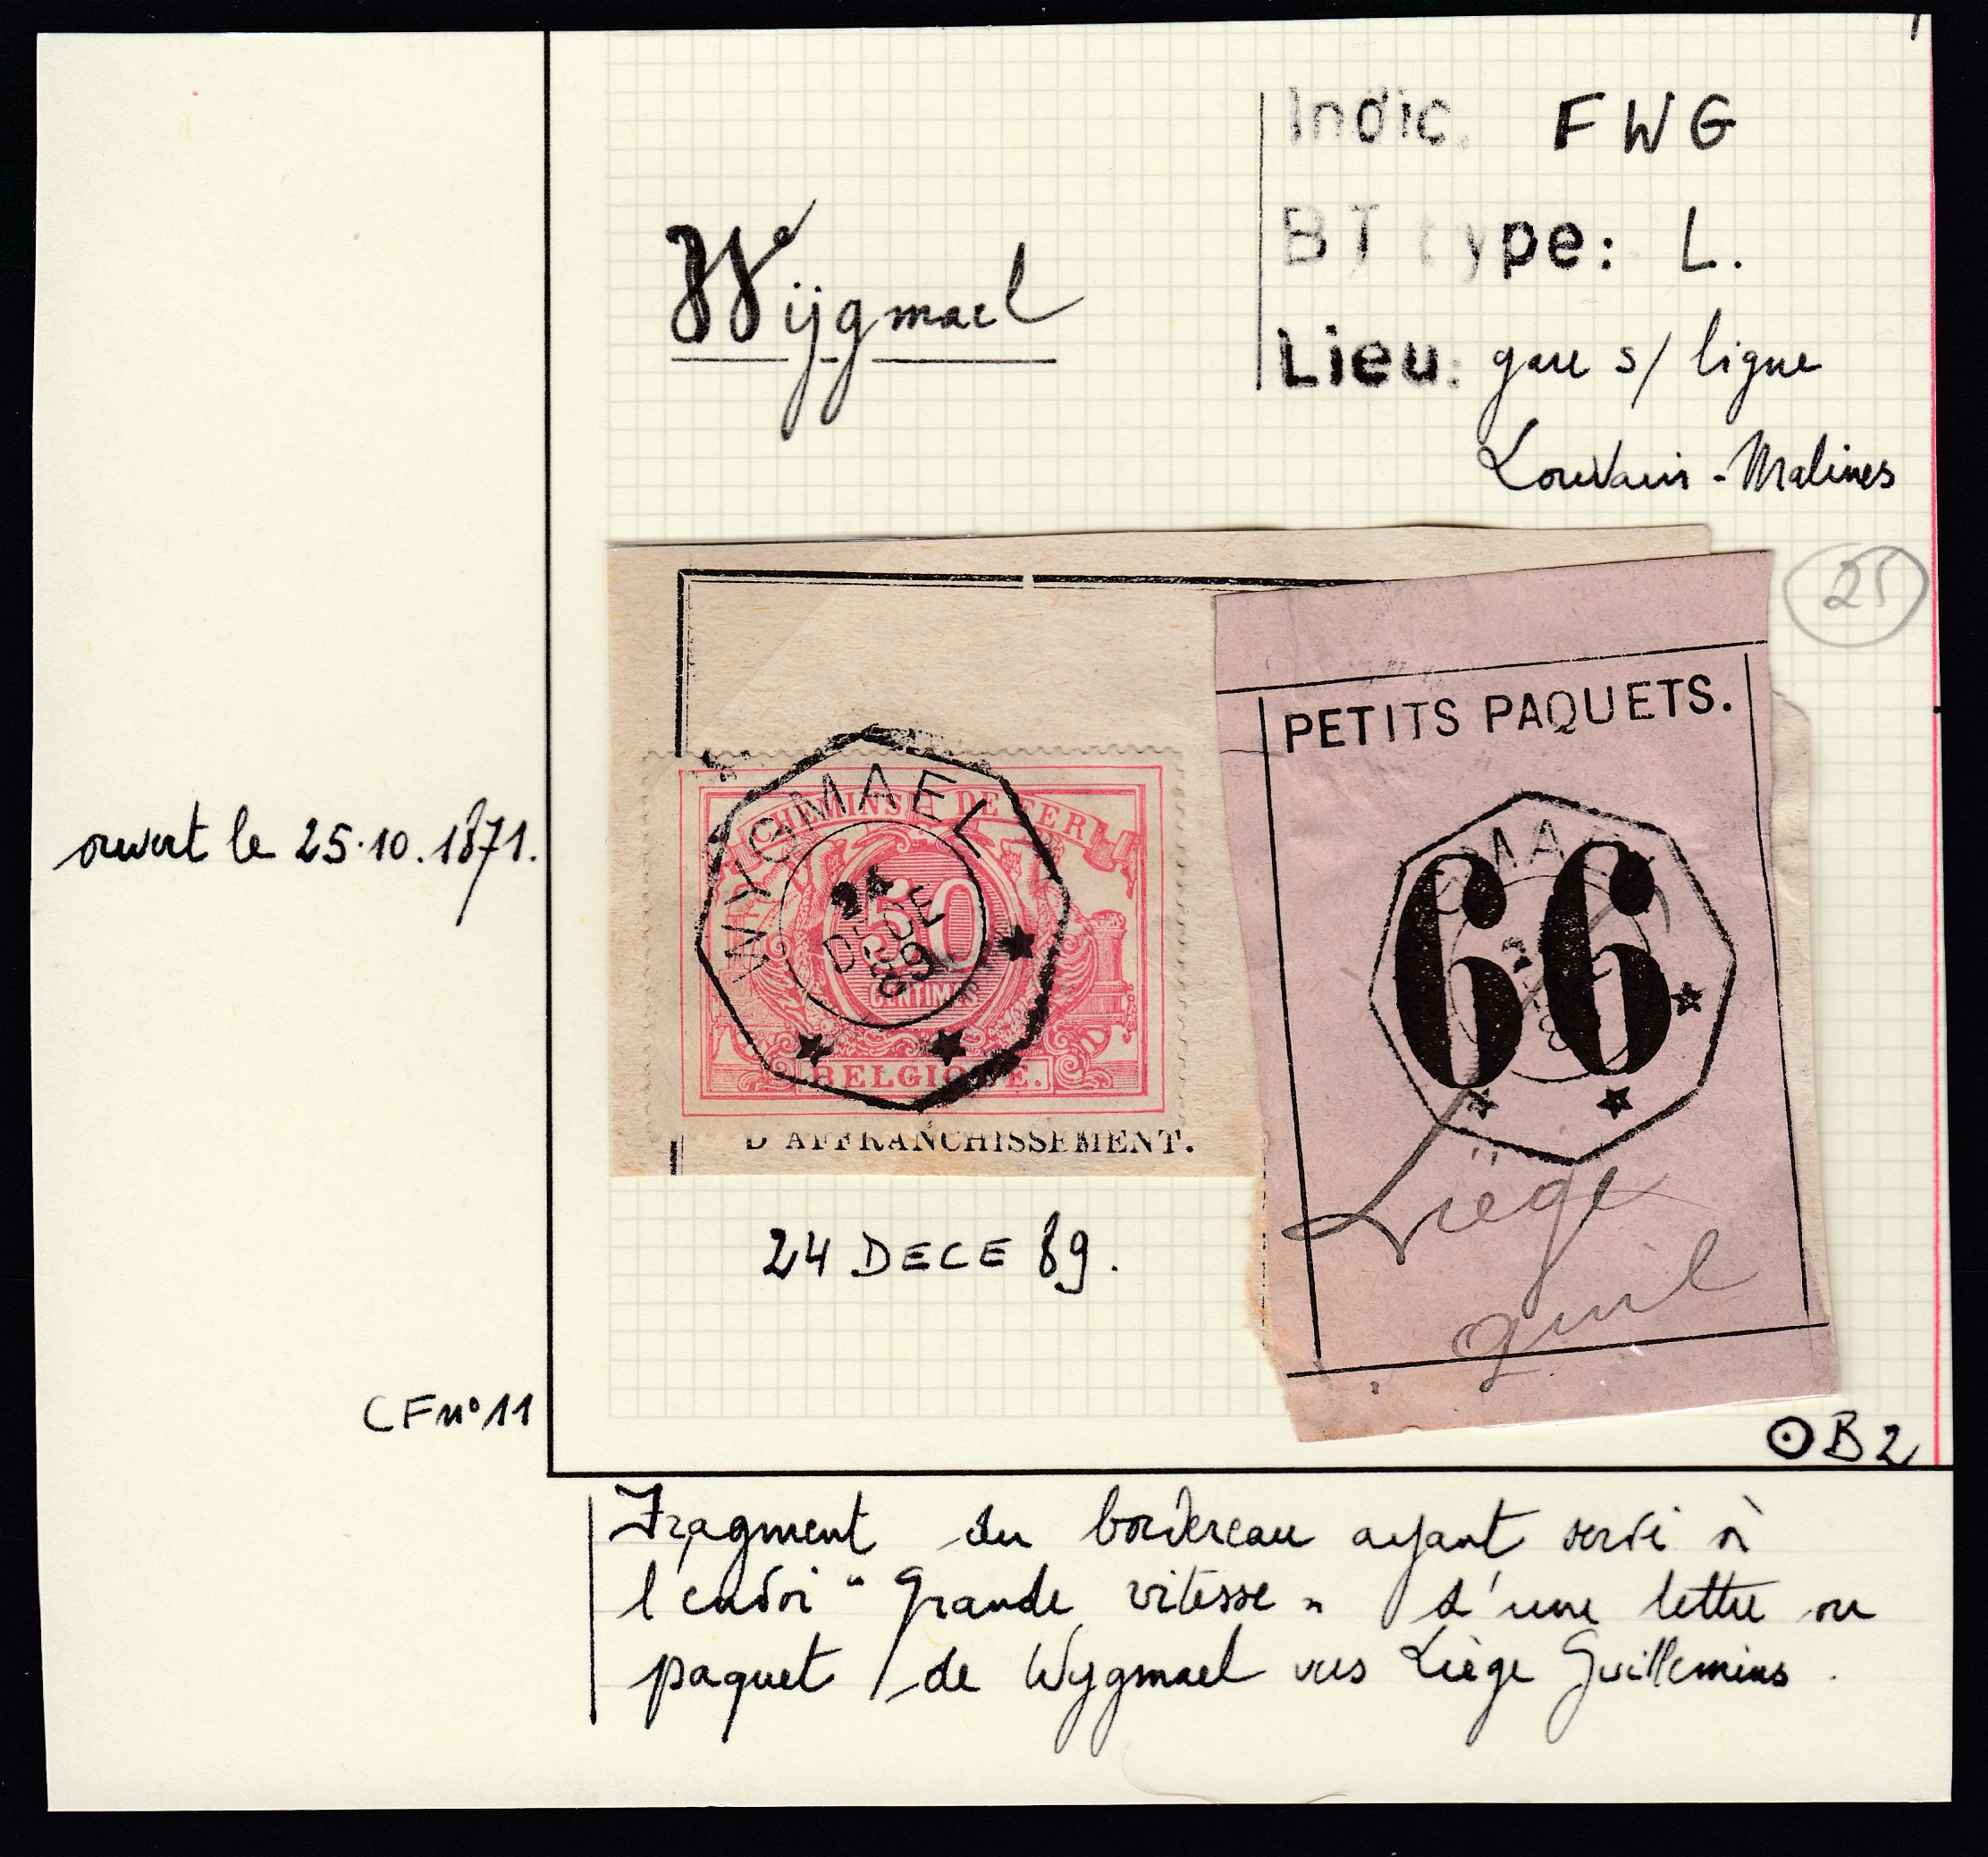 Indic. FWG
Wijgmael
BT type: L.
Lieu: gare s/ ligne
Louvain - Malines
25
PETITS PAQUETS.
ouvert le 25.10.1871.
WYGMAEL
24
DECE
89
CHEMINS DE FER
50
CENTIMES
BELGIQUE.
D'AFFRANCHISSEMENT.
66
Liége
Guil
24 DECE 89.
CF n° 11
B2
Fragment du bordereau ayant servi à
l'envoi "Grande vitesse" d'une lettre ou
paquet de Wygmael vers Liège Guillemins.